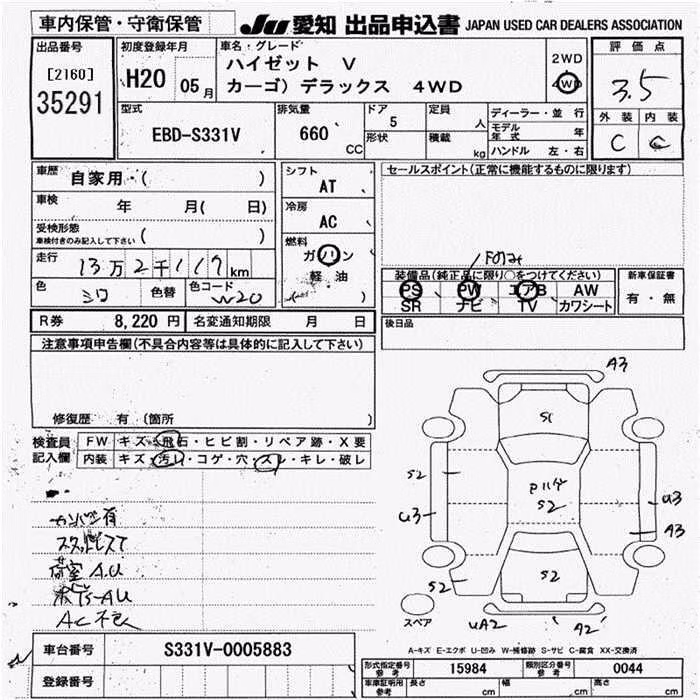 車内保管・守衛保管
JU 愛知 出品申込書 JAPAN USED CAR DEALERS ASSOCIATION
出品番号
[2160]
35291
初度登録年月
H20 05月
車名・グレード
ハイゼット V
カーゴ) デラックス 4WD
2WD
4WD
評価点
3.5
外装 内装
C C
型式
EBD-S331V
排気量
660 CC
ドア
5
形状
定員
人
積載
kg
ディーラー・並 行
モデル年式 年
ハンドル 左・右
車歴
自家用 ( )
車検
年 月( 日)
受検形態
車検付きのみ記入して下さい ( )
走行
13万2千117km
色
シロ
色替
色コード
W20
シフト
AT
冷房
AC
燃料
ガソリン
軽・油
( )
セールスポイント(正常に機能するものに限ります)
Fのみ
装備品(純正品に限り○をつけてください)
PS PW エアB AW
SR ナビ TV カワシート
新車保証書
有・無
R券 8,220 円 名変通知期限 月 日
後日品
注意事項申告欄(不具合内容等は具体的に記入して下さい)
修復歴 有 (箇所 )
検査員記入欄
FW キズ・飛石・ヒビ割・リペア跡・X要
内装 キズ・汚レ・コゲ・穴・スレ・キレ・破レ
カンバン有
スタッドレスT
荷室 A.U
AC不良
A3
S1
S2
S2
U3
U3
A3
S2
S2
UA2
A2
スペア
A-キズ E-エクボ U-凹み W-補修跡 S-サビ C-腐食 XX-交換済
車台番号 S331V-0005883
登録番号
型式指定番号 参考 15984 類別区分番号 参考 0044
車庫証明用 参考 長さ cm 幅 cm 高さ cm